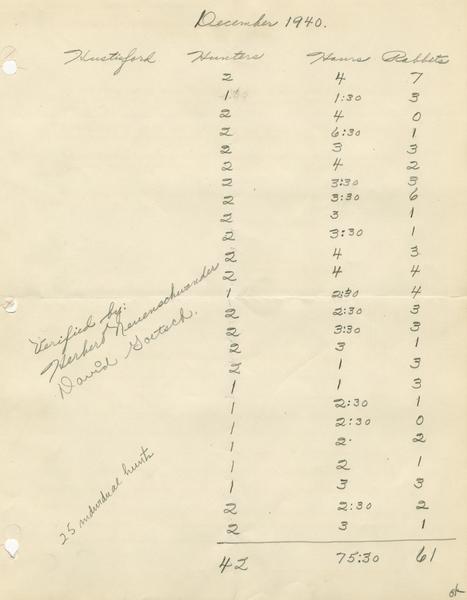 December 1940.
Hustisford Hunters Hours Rabbits
2 4 7
1 1:30 3
2 4 0
2 6:30 1
2 3 3
2 4 2
2 3:30 3
2 3:30 6
2 3 1
2 3:30 1
2 4 3
2 4 4
1 2:30 4
2 2:30 3
2 3:30 3
2 3 1
2 1 3
1 1 3
1 2:30 1
1 2:30 0
1 2 2
1 2 1
1 3 3
2 2:30 2
2 3 1
42 75:30 61
Verified by:
Herbert Neuenschwander
David Goetsch.
25 individual hunts
ok